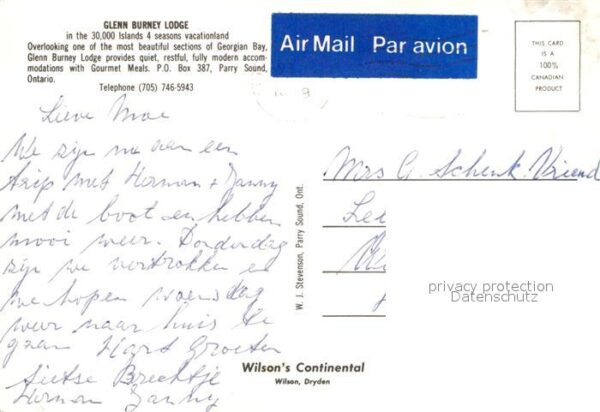 GLENN BURNEY LODGE
in the 30,000 Islands 4 seasons vacationland
Overlooking one of the most beautiful sections of Georgian Bay,
Glenn Burney Lodge provides quiet, restful, fully modern accom-
modations with Gourmet Meals. P.O. Box 387, Parry Sound,
Ontario.
Telephone (705) 746-5943
Air Mail Par avion
THIS CARD
IS A
100%
CANADIAN
PRODUCT
Lieve Moe
We zijn nu aan een
trip met Herman + Zanny
met de boot en hebben
mooi weer. Donderdag
zijn we vertrokken en
we hopen woensdag
weer naar huis te
gaan Hart Groeten
Sietse Brechtje
Herman Zanny
W. J. Stevenson, Parry Sound, Ont.
Mrs G. Schenk. Vriend
privacy protection
Datenschutz
Wilson's Continental
Wilson, Dryden